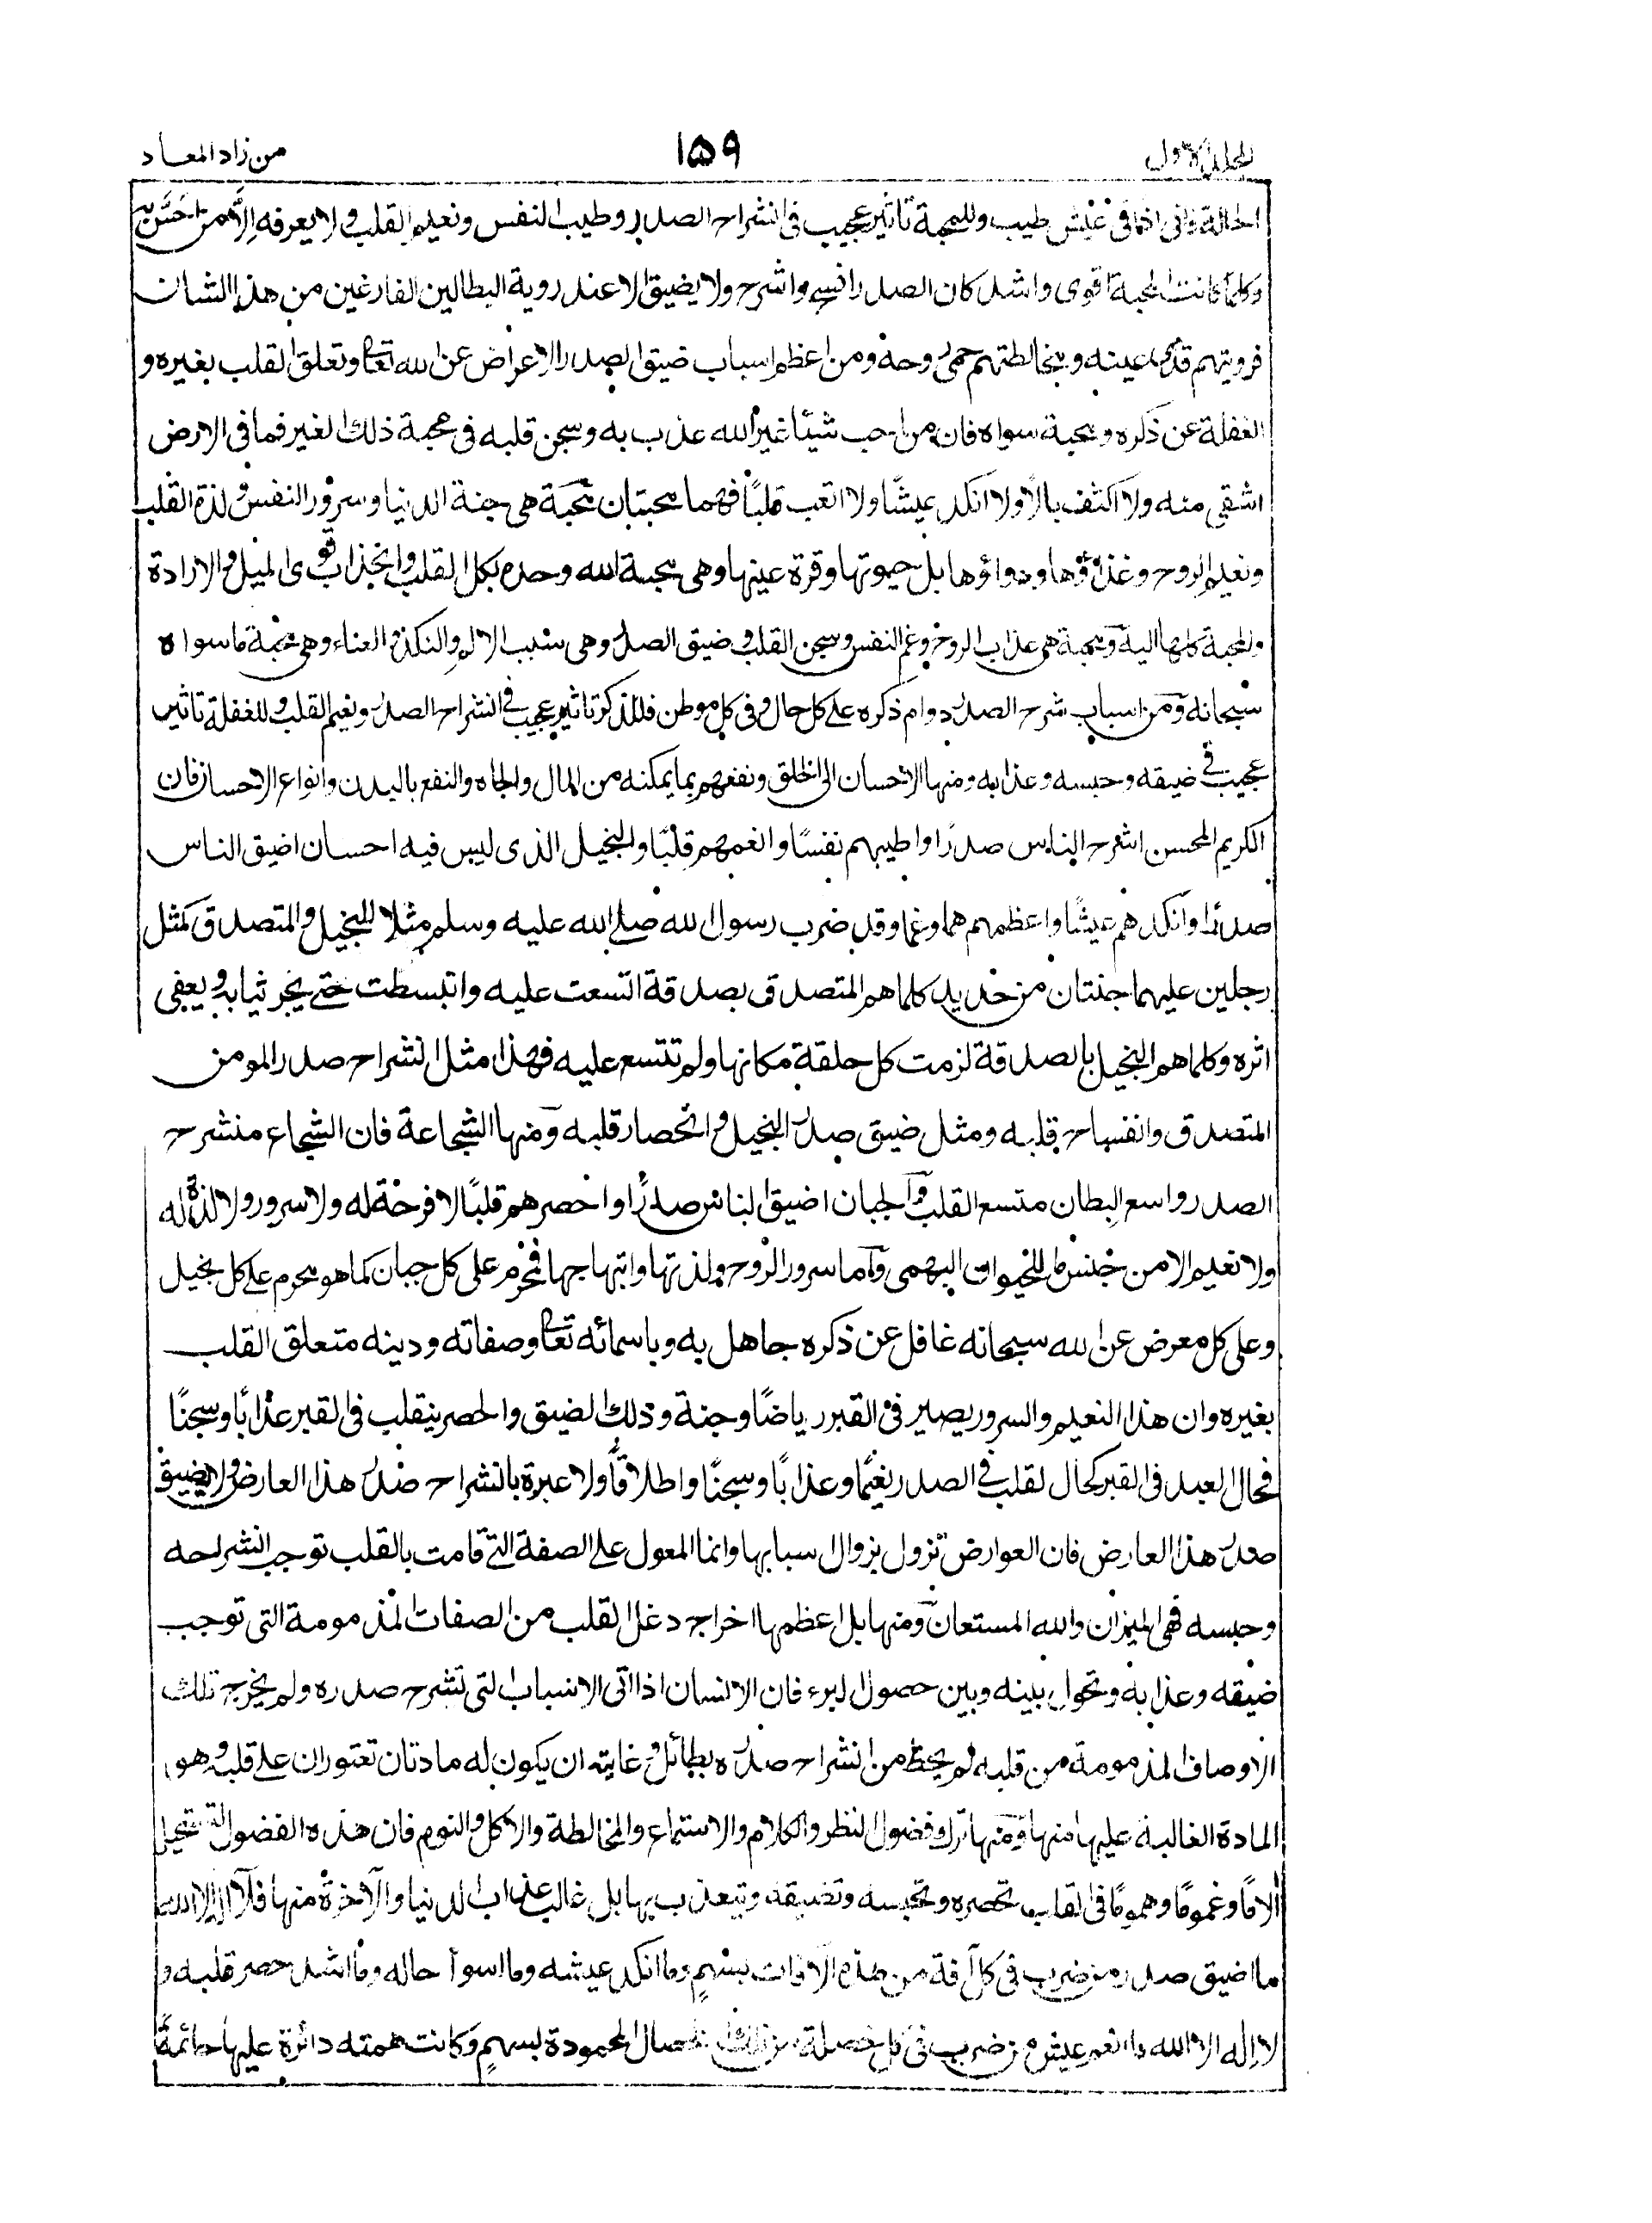 المجلد الاول
١٥٩
من زاد المعاد
الحالة فانى اذا فى عيش طيب وللمحبة تاثير عجيب فى انشراح الصدر وطيب النفس ونعيم القلب ولا يعرفه الا من احس به
وكلما كانت المحبة اقوى واشد كان الصدر افسح واشرح ولا يضيق الا عند روية البطالين الفارغين من هذا الشان
فرويتهم قذى عينه ومخالطتهم حمى روحه ومن اعظم اسباب ضيق الصدر الاعراض عن الله تعالى وتعلق القلب بغيره و
الغفلة عن ذكره ومحبة سواه فان من احب شيئا غير الله عذب به وسجن قلبه فى محبة ذلك الغير فما فى الارض
اشقى منه ولا اكثف بالًا ولا انكد عيشًا ولا اتعب قلبًا فهما محبتان محبة هى جنة الدنيا وسرور النفس ولذة القلب
ونعيم الروح وغذاؤها ودواؤها بل حيوتها وقرة عينها وهى محبة الله وحده بكل القلب وانجذاب قوى الميل والارادة
والمحبة كلها اليه ومحبة هى عذاب الروح وغم النفس وسجن القلب وضيق الصدر وهى سبب الالم والنكد والعناء وهى محبة ما سواه
سبحانه ومن اسباب شرح الصدر دوام ذكره على كل حال وفى كل موطن فللذكر تاثير عجيب فى انشراح الصدر ونعيم القلب وللغفلة تاثير
عجيب فى ضيقه وحبسه وعذابه ومنها الاحسان الى الخلق ونفعهم بما يمكنه من المال والجاه والنفع بالبدن وانواع الاحسان فان
الكريم المحسن اشرح الناس صدرًا واطيبهم نفسًا وانعمهم قلبًا والبخيل الذى ليس فيه احسان اضيق الناس
صدرًا وانكدهم عيشًا واعظمهم هما وغما وقد ضرب رسول الله صلى الله عليه وسلم مثلا للبخيل والمتصدق كمثل
رجلين عليهما جنتان من حديد كلما هم المتصدق بصدقة اتسعت عليه وانبسطت حتى يجر ثيابه ويعفى
اثره وكلما هم البخيل بالصدقة لزمت كل حلقة مكانها ولم تتسع عليه فهذا مثل انشراح صدر المومن
المتصدق وانفساح قلبه ومثل ضيق صدر البخيل وانحصار قلبه ومنها الشجاعة فان الشجاع منشرح
الصدر واسع البطان متسع القلب والجبان اضيق الناس صدرًا واحصرهم قلبًا لا فرحة له ولا سرور ولا لذة له
ولا نعيم الا من جنس ما للحيوان البهمى واما سرور الروح ولذتها وابتهاجها فمحرم على كل جبان كما هو محرم على كل بخيل
وعلى كل معرض عن الله سبحانه غافل عن ذكره جاهل به وباسمائه تعالى وصفاته ودينه متعلق القلب
بغيره وان هذا النعيم والسرور يصير فى القبر رياضًا وجنة وذلك الضيق والحصر ينقلب فى القبر عذابًا وسجنًا
فحال العبد فى القبر كحال القلب فى الصدر نعيمًا وعذابًا وسجنًا واطلاقًا ولا عبرة بانشراح صدر هذا العارض ولا بضيق
صدر هذا العارض فان العوارض تزول بزوال اسبابها وانما المعول على الصفة التى قامت بالقلب توجب انشراحه
وحبسه فهى الميزان والله المستعان ومنها بل اعظمها اخراج دغل القلب من الصفات المذمومة التى توجب
ضيقه وعذابه وتحول بينه وبين حصول البرء فان الانسان اذا اتى الاسباب التى تشرح صدره ولم يخرج تلك
الاوصاف المذمومة من قلبه لم يحظ من انشراح صدره بطائل وغايته ان يكون له مادتان تعتوران على قلبه وهو
المادة الغالبة عليها منها ومنها ترك فضول النظر والكلام والاستماع والمخالطة والاكل والنوم فان هذه الفضول تستحيل
آلامًا وغمومًا وهمومًا فى القلب تحصره وتحبسه وتضيقه ويتعذب بها بل غالب عذاب الدنيا والآخرة منها فلا اله الا الله
ما اضيق صدر من ضرب فى كل آفة من هذه الآفات بسهمٍ وما انكد عيشه وما اسوأ حاله وما اشد حصر قلبه و
لا اله الا الله ما انعم عيش من ضرب فى كل خصلة من تلك الخصال المحمودة بسهمٍ وكانت همته دائرة عليها حائمةً